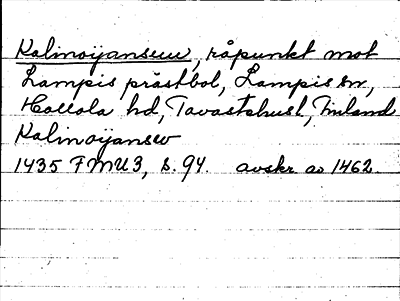 Kalinoijansuu, råpunkt mot
Lampis prästbol, Lampis sn,
Hollola hd, Tavastehusl, Finland
Kalinoijansw
1435 FMU3, s. 94. avskr. av 1462.